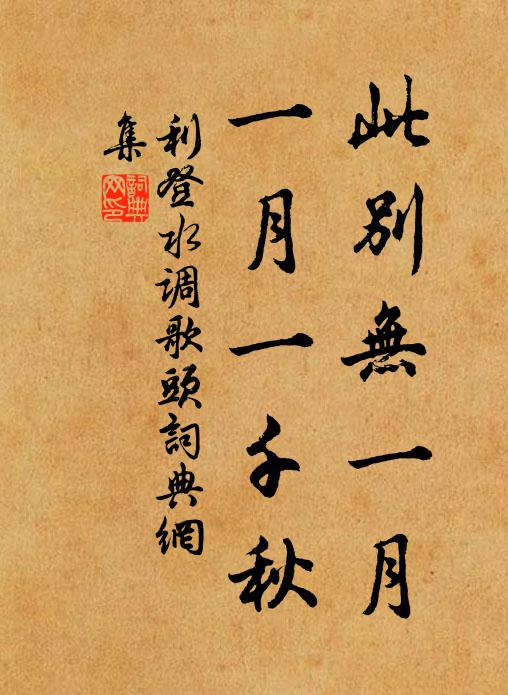 此別無一月
一月一千秋
利登水调歌頭詞典網
集
詞典
网印